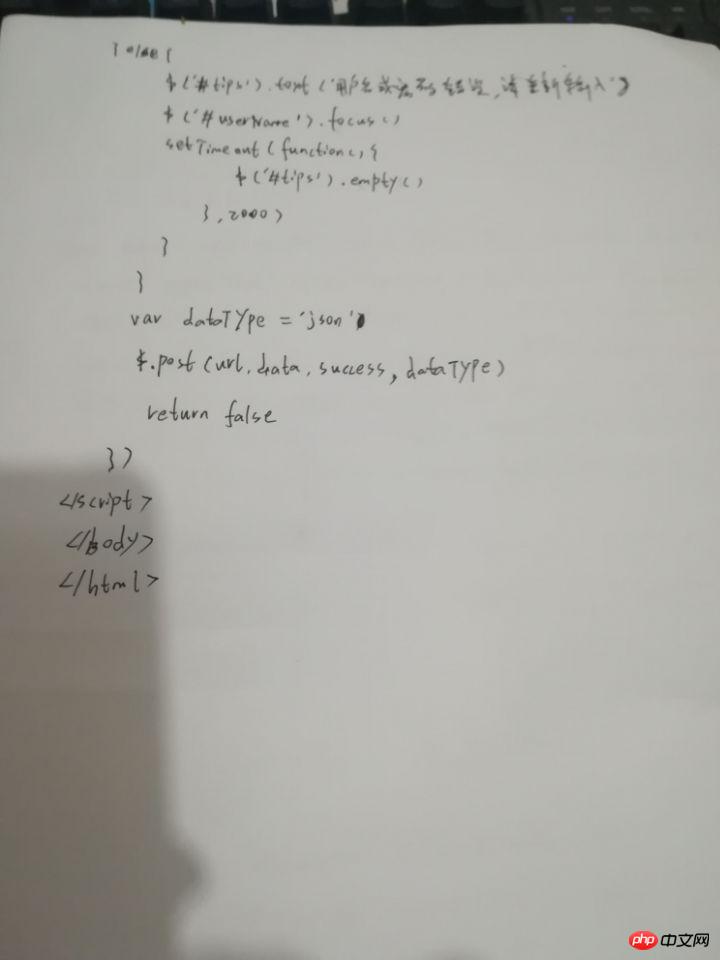 } else {
$('#tips').text('用户名或密码错误,请重新输入')
$('#userName').focus()
setTimeout(function(){
$('#tips').empty()
},2000)
}
}
var dataType = 'json'
$.post(url,data,success,dataType)
return false
})
</script>
</body>
</html>
php 中文网